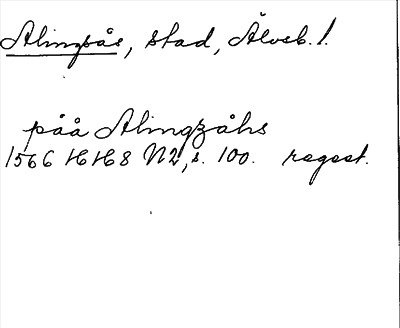 Alingsås, stad, Älvsb. l.
påå Alingzåhs
1566 16168 N2, s. 100. regest.